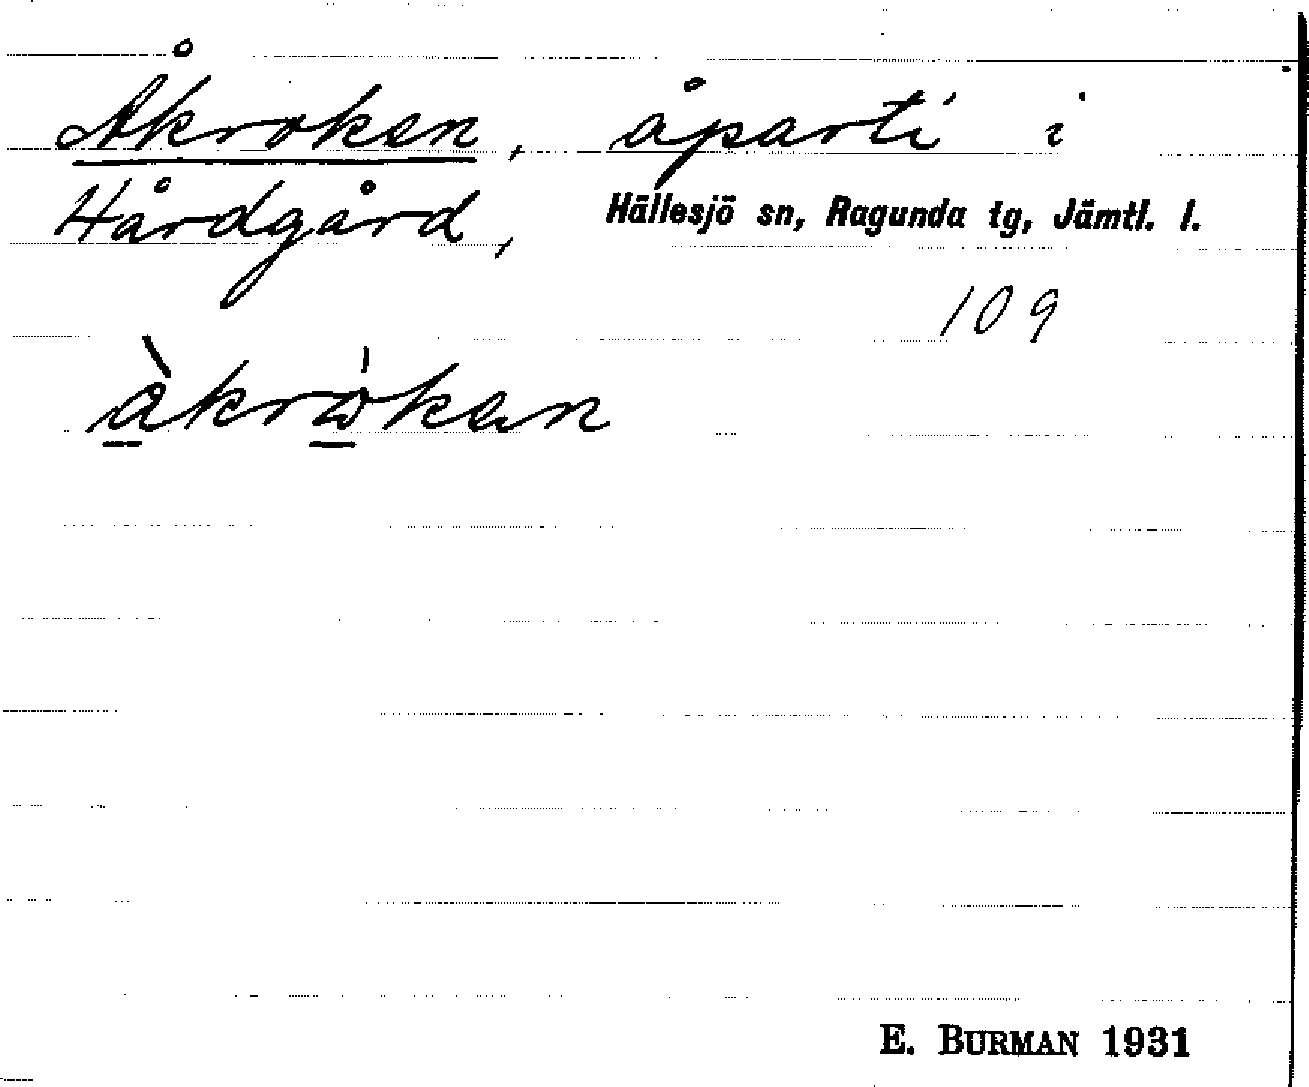 Åkroken, åparti i
Hårdgård, Hällesjö sn, Ragunda tg, Jämtl. l.
109
àkrὼken
E. BURMAN 1931